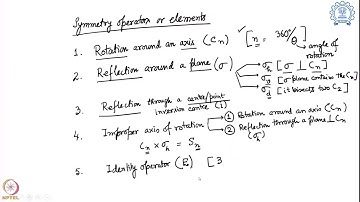 Symmetry operators or elements
1. Rotation around an axis (Cn) [n = 360°/θ → angle of rotation
2. Reflection around a plane (σ) σh [σ ⊥ Cn]
σv [σ plane contains the Cn]
σd [it bisects two C2]
3. Reflection through a centre/point
inversion centre (i)
4. Improper axis of rotation ① Rotation around an axis (Cn)
Cn × σh = Sn ② Reflection through a plane ⊥ Cn
(σh)
5. Identity operator (E) [3
NPTEL